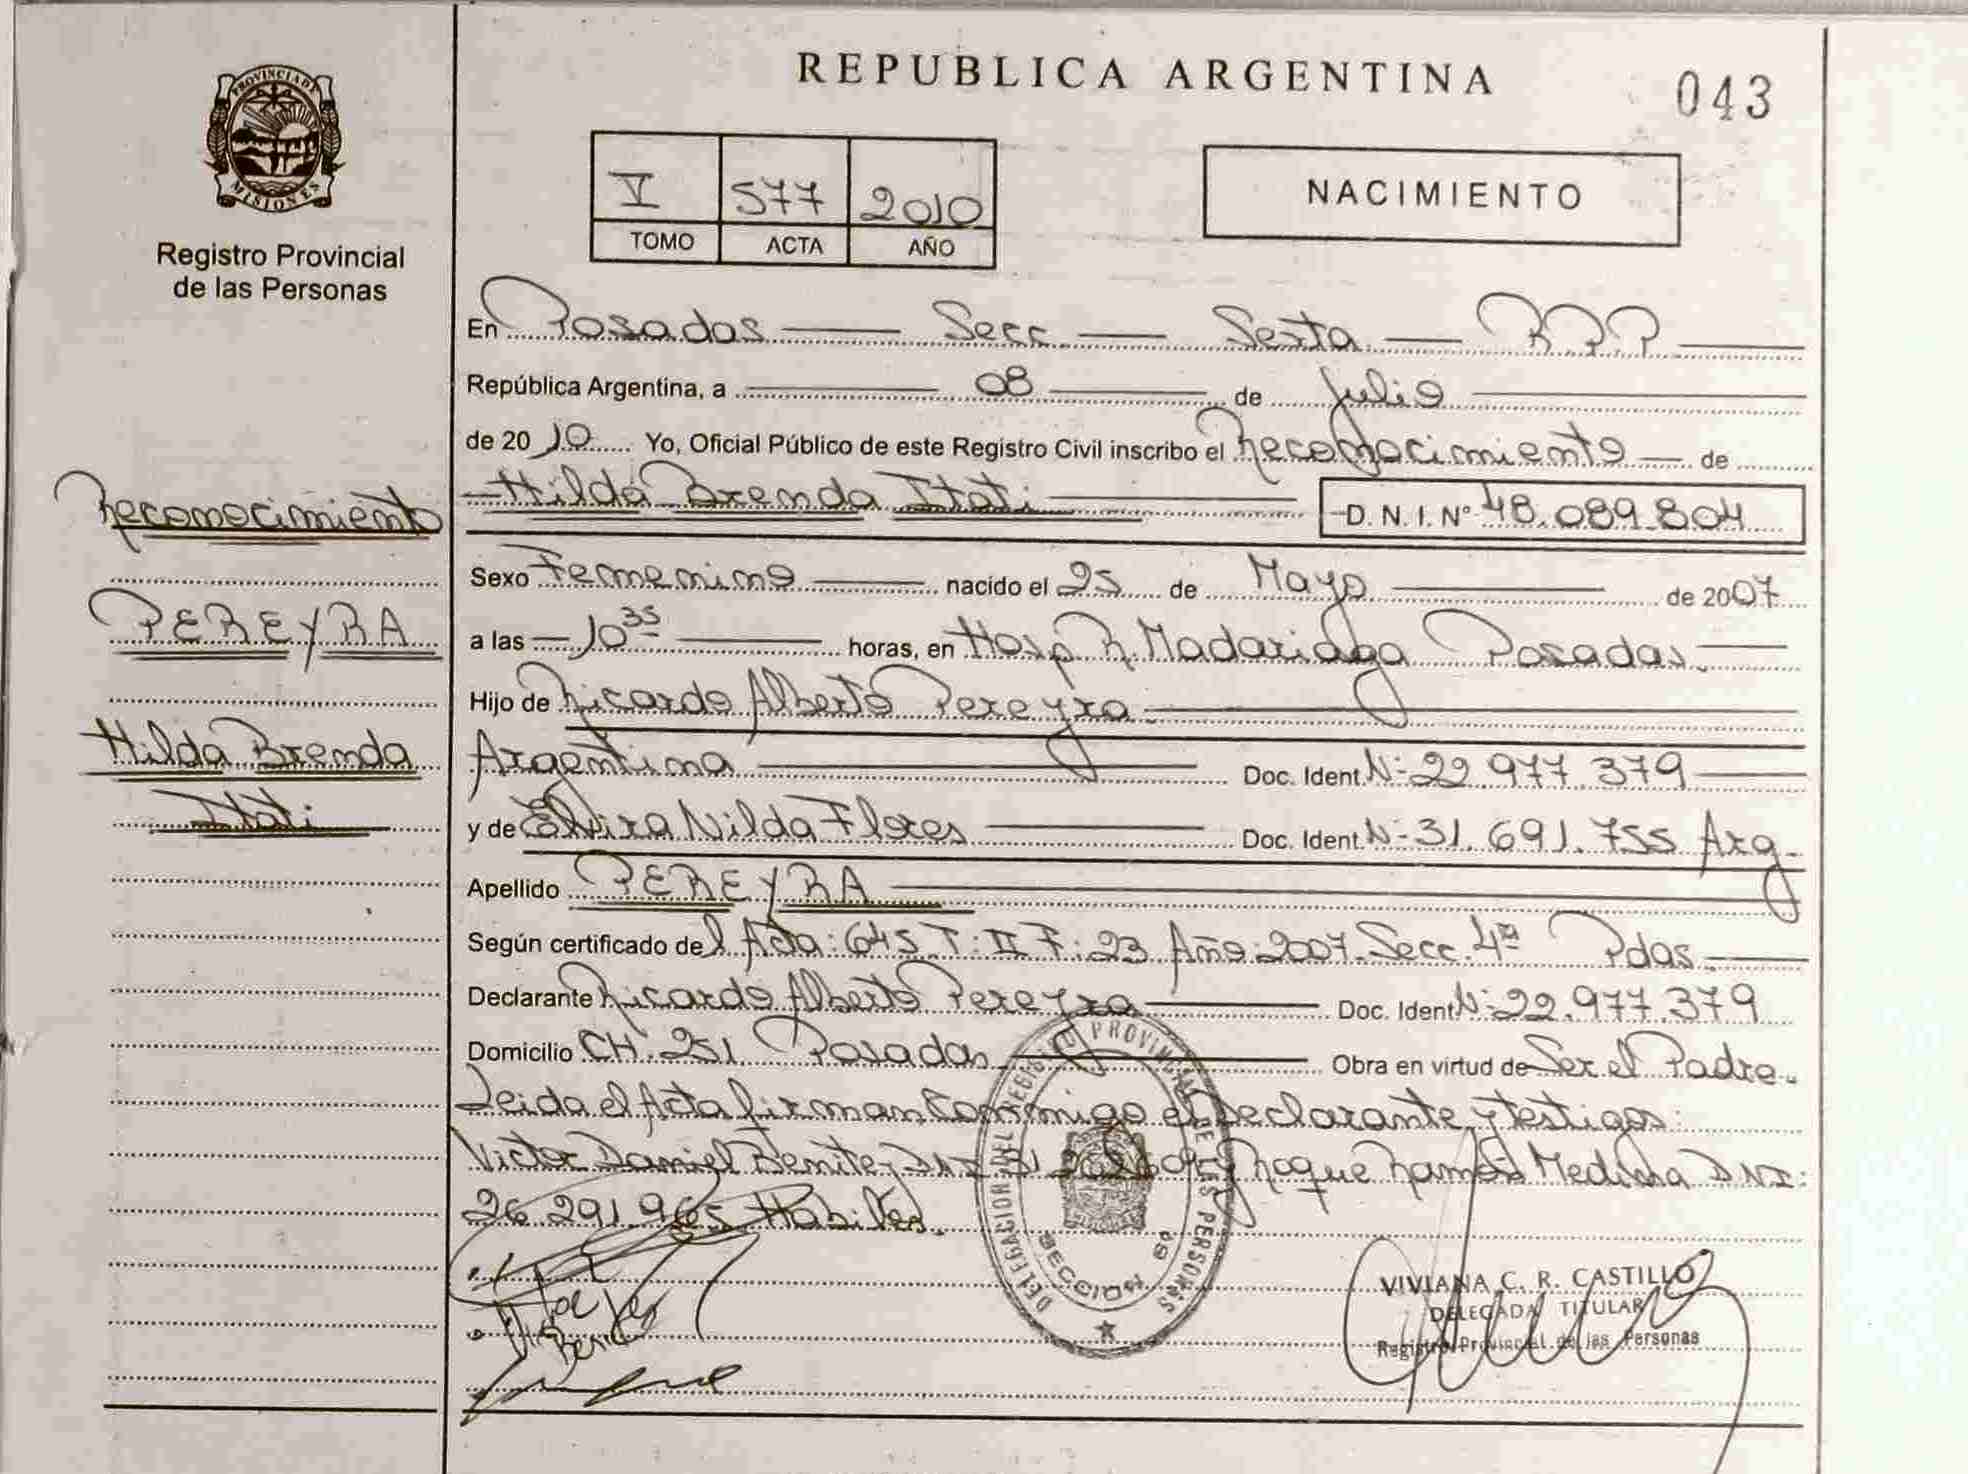 REPUBLICA ARGENTINA
043
PROVINCIA DE MISIONES
Registro Provincial
de las Personas
V 577 2010
TOMO ACTA AÑO
NACIMIENTO
En Posadas Secc. Sexta RPP
República Argentina, a 08 de Julio
de 2010 Yo, Oficial Público de este Registro Civil inscribo el Reconocimiento de
Hilda Brenda Itati D. N. I. Nº 48.089.804
Sexo Femenino nacido el 25 de Mayo de 2007
a las 10 35 horas, en Hosp R. Madariaga Posadas.
Hijo de Ricardo Alberto Pereyra
Argentina Doc. Ident. Nº 22.977.379
y de Elvira Nilda Flores Doc. Ident. Nº 31.691.755 Arg.
Apellido PEREYRA
Según certificado del Acta: 645 T: II F: 23 Año: 2007. Secc. 4ª Pdas.
Declarante Ricardo Alberto Pereyra Doc. Ident Nº 22.977.379
Domicilio CH. 251. Posadas Obra en virtud de Ser el Padre.
Leida el Acta firman Conmigo el Declarante y testigos:
Victor Daniel Benitez DNI y Roque Ramón Medina DNI:
26.291.965 Habiles.
Reconocimiento
PEREYRA
Hilda Brenda
Itati
DELEGACION DEL REGISTRO PROVINCIAL DE LAS PERSONAS
SECCION 6ª
VIVIANA C. R. CASTILLO
DELEGADA TITULAR
Registro Provincial de las Personas